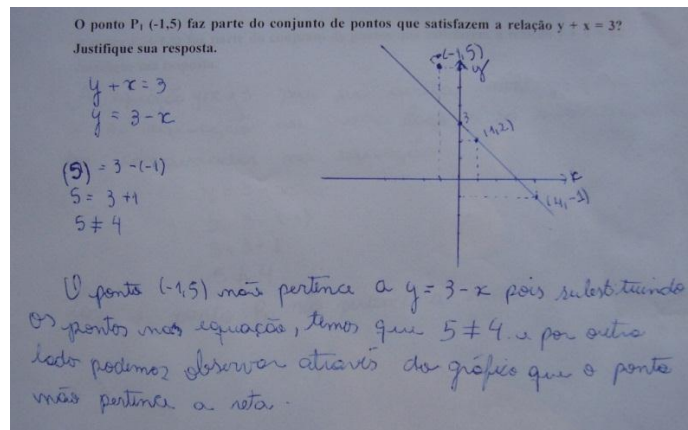 O ponto P₁ (-1,5) faz parte do conjunto de pontos que satisfazem a relação y + x = 3?
Justifique sua resposta.
y + x = 3
y = 3 - x
(5) = 3 -(-1)
5 = 3 + 1
5 ≠ 4
(-1,5)
y
3
(1,2)
x
(4,-1)
O ponto (-1,5) não pertence a y = 3 - x pois substituindo
os pontos nas equação, temos que 5 ≠ 4 e por outro
lado podemos observar através do gráfico que o ponto
não pertence a reta.